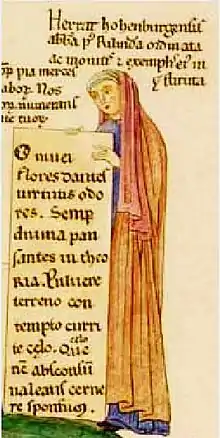 Herrat hohenburgensis
abba p9 Rilindā ordinata
ac monitis 7 exemplis ei9 in
stituta
pia merces
labor. Nos
numerans
O niuei
flores dantes
uirtutis odo
res. Semp
diuina pau
santes in theo
ria. Puluere
terreno con
tempto curri
te celo. Que
celo
nc̄ absconsū
ualeatis cerne
re sponsum.